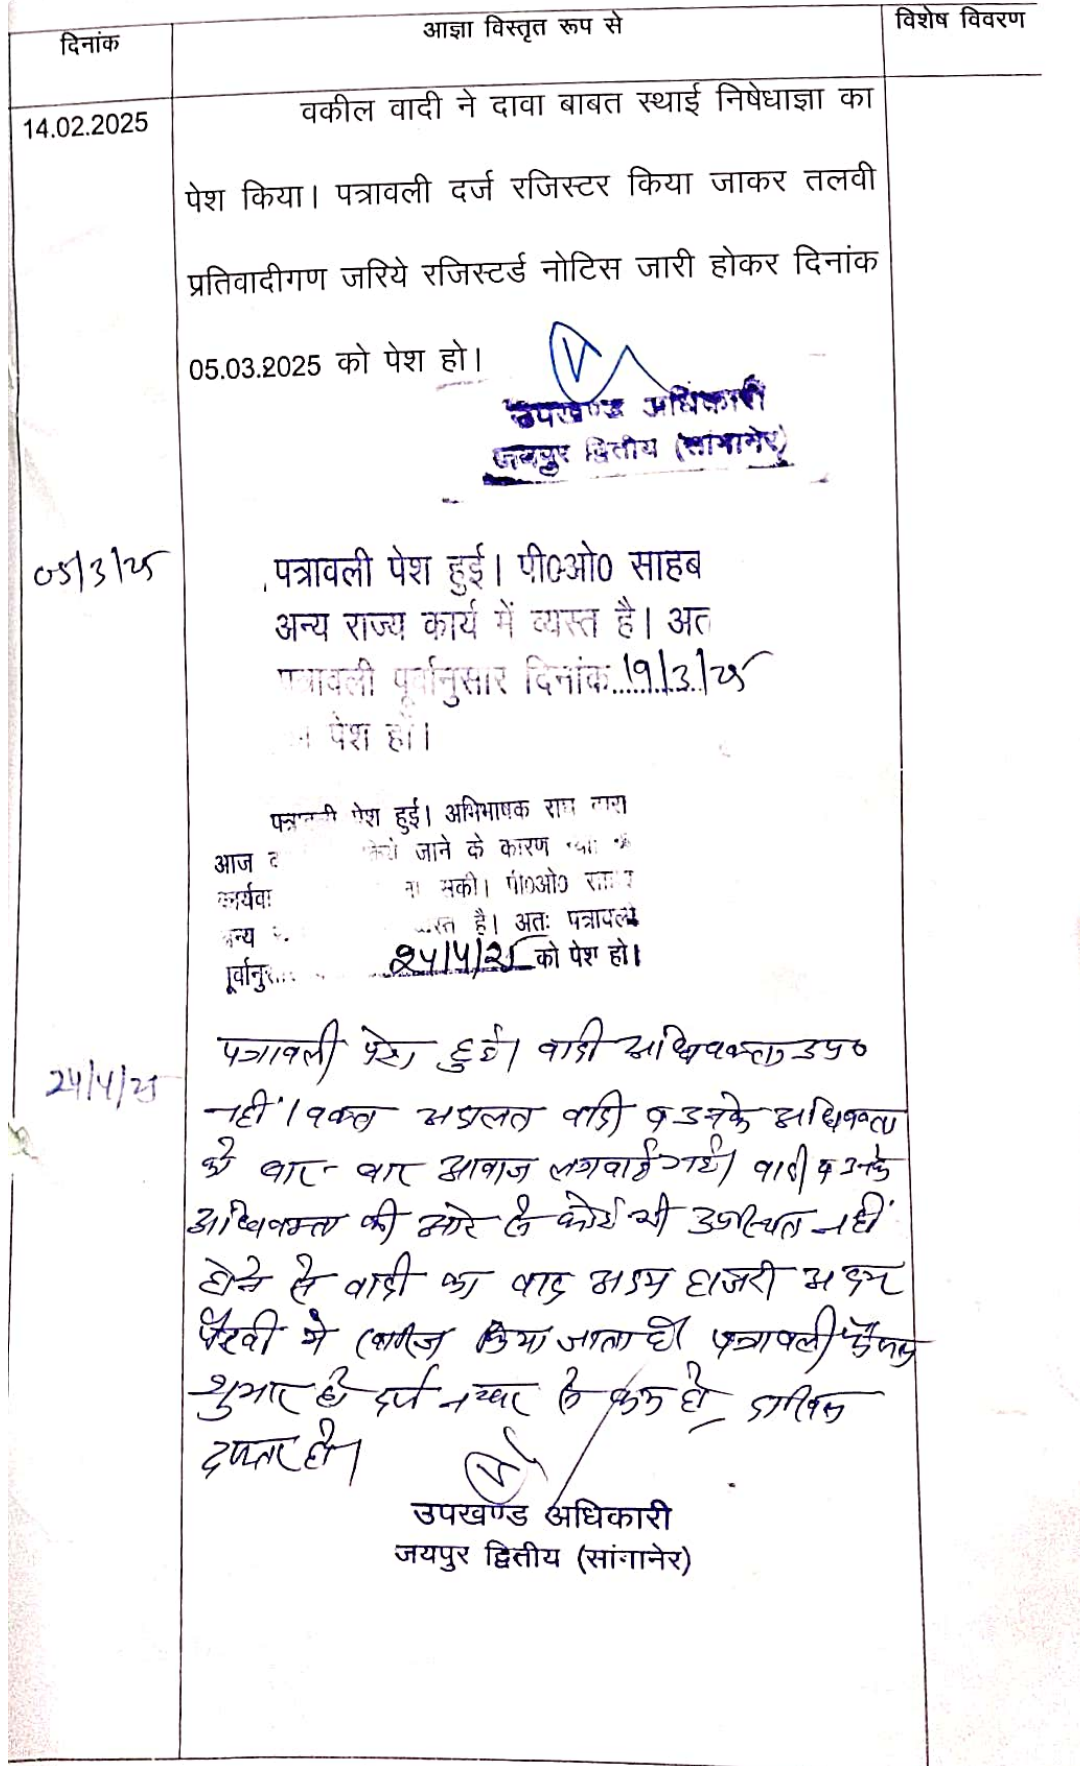 दिनांक
आज्ञा विस्तृत रूप से
विशेष विवरण
14.02.2025
वकील वादी ने दावा बाबत स्थाई निषेधाज्ञा का
पेश किया। पत्रावली दर्ज रजिस्टर किया जाकर तलवी
प्रतिवादीगण जरिये रजिस्टर्ड नोटिस जारी होकर दिनांक
05.03.2025 को पेश हो।
उपखण्ड अधिकारी
जयपुर द्वितीय (सांगानेर)
05/3/25
पत्रावली पेश हुई। पी०ओ० साहब
अन्य राज्य कार्य में व्यस्त है। अत
पत्रावली पूर्वानुसार दिनांक 19/3/25
पेश हो।
पेश हुई। अभिभाषक
आज जाने के कारण
सकी। पी०ओ०
है। अतः पत्रावली
24/4/25 को पेश हो।
24/4/25
पत्रावली पेश हुई। वादी अधिवक्ता उप०
नहीं। वक्त अदालत वादी व उनके अधिवक्ता
को बार-बार आवाज लगवाई गई। वादी व उनके
अधिवक्ता की ओर से कोई भी उपस्थित नहीं
होने से वादी का वाद अदम हाजरी अदम
पैरवी में खारिज किया जाता है। पत्रावली फैसल
शुमार हो दर्ज नम्बर से कम हो, दाखिल
दफ्तर हो।
उपखण्ड अधिकारी
जयपुर द्वितीय (सांगानेर)